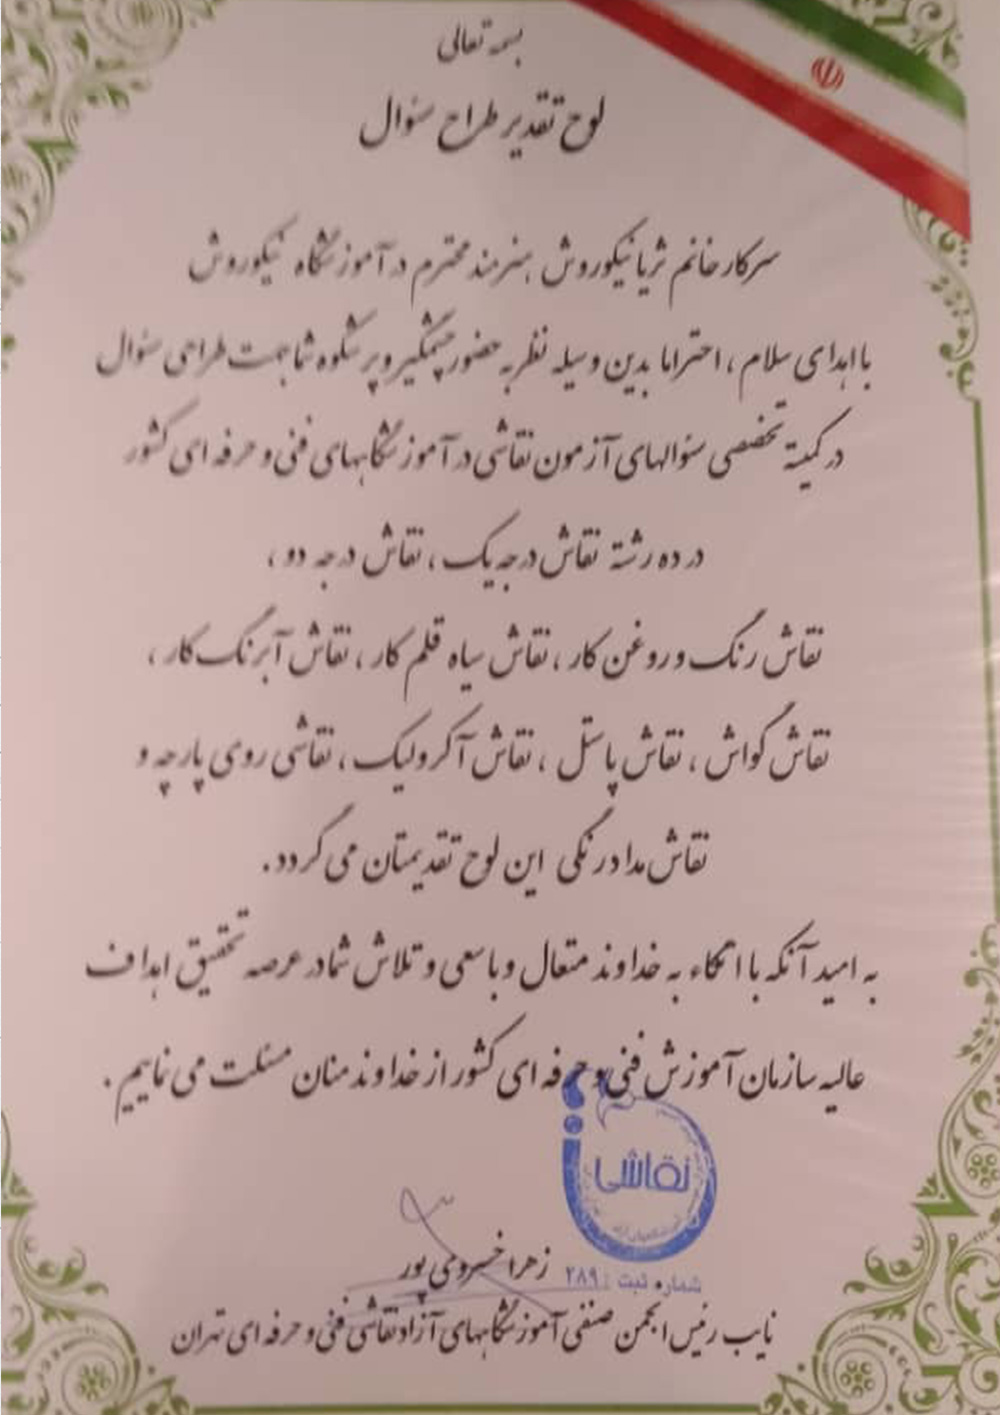 بسمه تعالی
لوح تقدیر طراح سؤال
سرکار خانم ثریا نیکوروش هنرمند محترم در آموزشگاه نیکوروش
با اهدای سلام ، احتراما بدین وسیله نظر به حضور چشمگیر و پرشکوه شما جهت طراحی سؤال
در کمیته تخصصی سؤالهای آزمون نقاشی در آموزشگاههای فنی و حرفه ای کشور
در ده رشته نقاش درجه یک ، نقاش درجه دو ،
نقاش رنگ و روغن کار ، نقاش سیاه قلم کار ، نقاش آبرنگ کار ،
نقاش گواش ، نقاش پاستل ، نقاش آکرولیک ، نقاشی روی پارچه و
نقاش مداد رنگی این لوح تقدیمتان می گردد .
به امید آنکه با اتکاء به خداوند متعال و با سعی و تلاش شما در عرصه تحقیق اهداف
عالیه سازمان آموزش فنی و حرفه ای کشور از خداوند منان مسئلت می نماییم .
نقاشی
شماره ثبت : ۲۸۹
زهرا خسروی پور
نایب رئیس انجمن صنفی آموزشگاههای آزاد نقاشی فنی و حرفه ای تهران